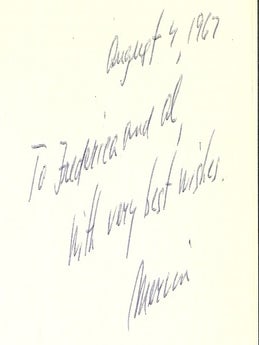 August 4, 1967
To Frederica and Al,
With very best wishes.